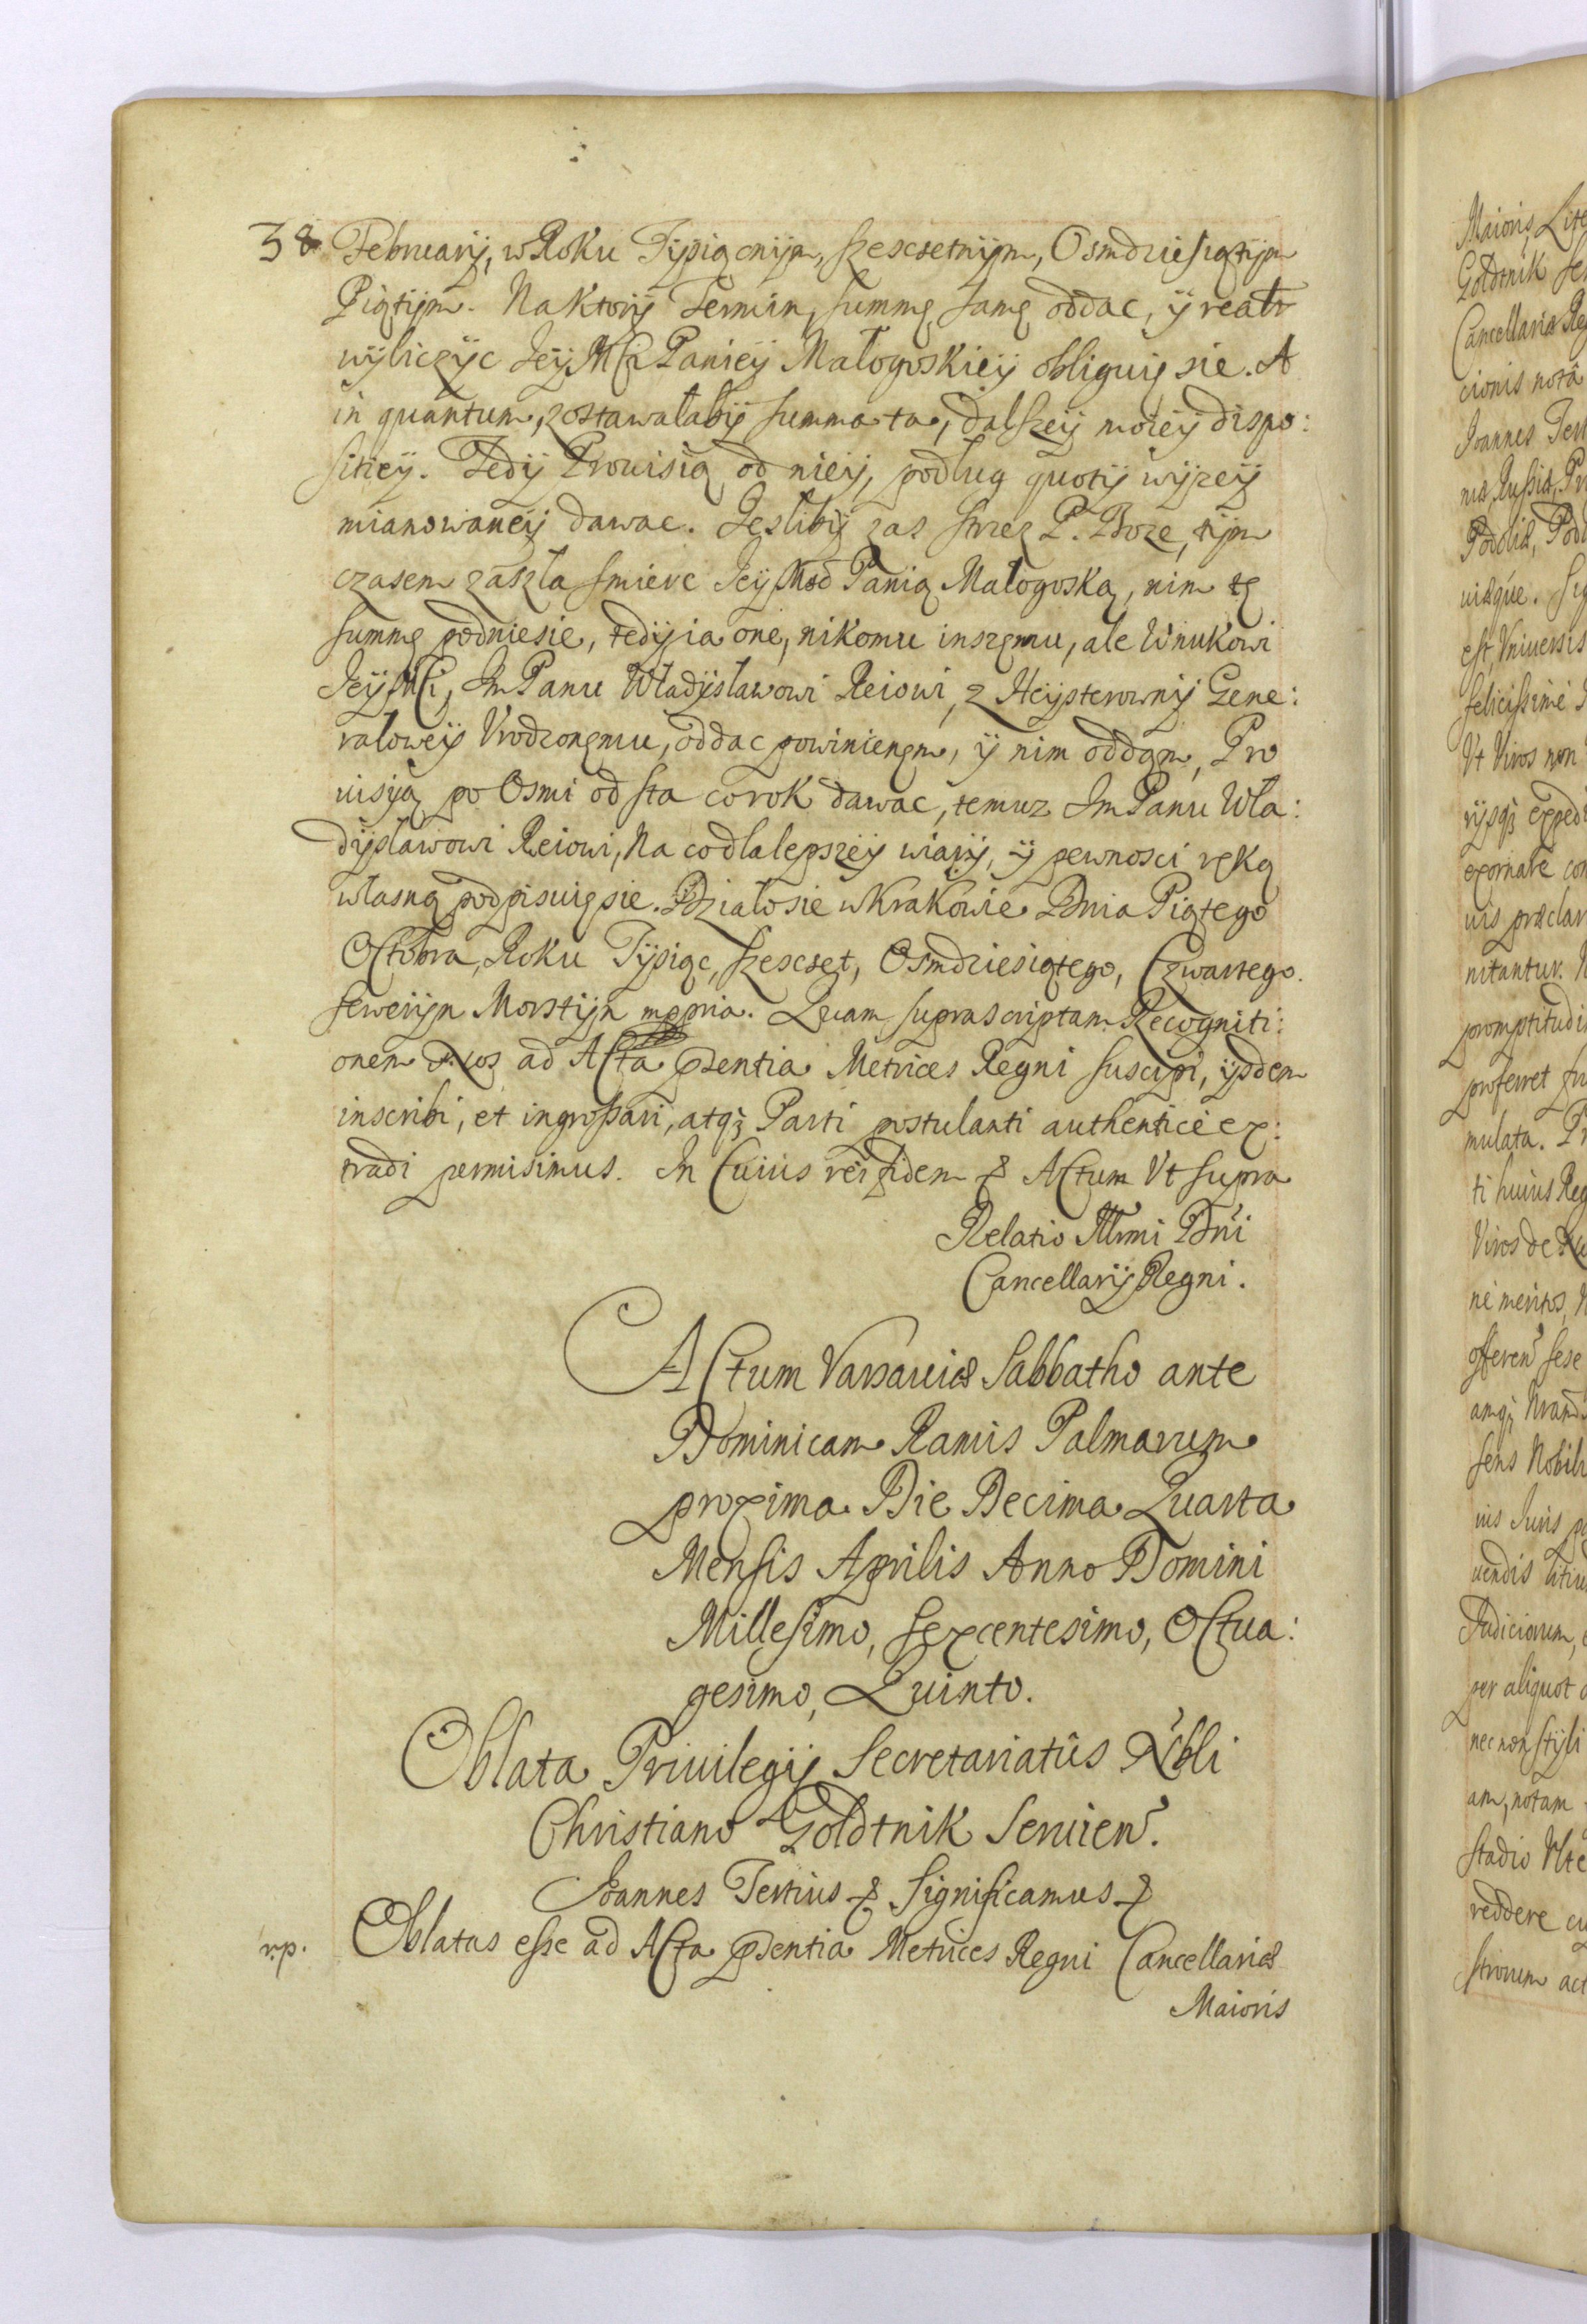 38 Februarij, w Roku Tysiącnÿm, szescsetnÿm, Osmdziesiątÿm
Piątÿm. Na Ktorÿ Termin, summę samę oddac, ÿ realr
wÿliczÿc Jeÿ Mći Panieÿ Małogoskieÿ obliguię sie. A
in quantum, zostawałabÿ summa ta, dalszeÿ moieÿ dispo:
sitieÿ. Tedÿ Prouisią od nieÿ, podług quotÿ wÿzeÿ
mianowaneÿ dawac. Jeslibÿ zas strzez P. Boze, tÿm
czasem zaszła smierc Jeÿ Mść Panią Małogoską, nim tę
summę podniesie, tedÿ ia one, nikomu inszęmu, ale Wnukowi
Jeÿ Mći, Jm Panu Władÿsławowi Reiowi, z Heÿsterownÿ Gene:
rałoweÿ Vrodzonęmu, oddac powinienęm, ÿ nim oddąm, Pro
uisÿą po Osmi od sta co rok dawac, temuz Jm Panu Wła:
dÿsławowi Reiowi, Na co dla lepszeÿ wiarÿ, ÿ pewnosci ręką
własną podpisuię sie. Działo sie w Krakowie Dnia Piątego
Octobra, Roku Tÿsiąc, szescset, Osmdziesiątego, Czwartego.
Sewerÿn Morstÿn mppria. Quam suprascriptam Recogniti:
onem Nos ad Acta pñsentia Metrices Regni suscipi, ijsdem
inscribi, et ingrossari, atq3 Parti postulanti authenticè ex:
tradi permisimus. In Cuius rei fidem & Actum Vt supra
Relatio Illrmi Dñi
Cancellarij Regni.
Actum Varsauiæ Sabbatho ante
Dominicam Ramis Palmarum
proxima Die Decima Quarta
Mensis Aprilis Anno Domini
Millesimo, Sexcentesimo, Octua:
gesimo, Quinto.
Oblata Priuilegij Secretariatûs Nobli
Christiano Goldtnik Seruien̄.
Joannes Tertius & Significamus &
Oblatas esse ad Acta pñsentia Metrices Regni Cancellariæ
Maioris
Maioris, Lite
Goldtnik se
Cancellariæ Reg
cionis notâ
Joannes Tert
næ Russiæ, Pr
Podoliæ, Pod
uiæque. Sig
est, Vniuersis
felicissimè
Vt Viros non
rijsq3 exped
exornare con
uis præclar
nitantur. N
promptitudi
proferret fru
mulata. Pr
ti huius Reg
Viros de
nè meritos, N
offeren̄ sese
amq3
sens Nobili
ius Juris
uendis litiu
Judiciorum,
per aliquot
nec non stÿli
am, notam
stadio Vlte
reddere cu
strorum act